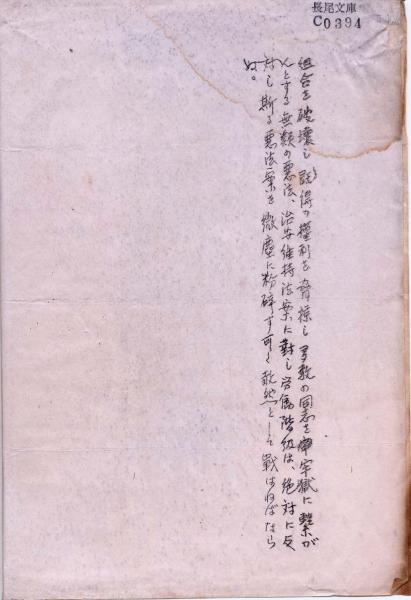 長尾文庫
C0394
組合を破壊し説得の権利を脅操し多数の同志を牢獄に繋が
んとする無類の悪法、治安維持法案に対し労働階級は、絶対に反
対し斯る悪法案を微塵に粉砕す可く敢然として戦はねばなら
ぬ。